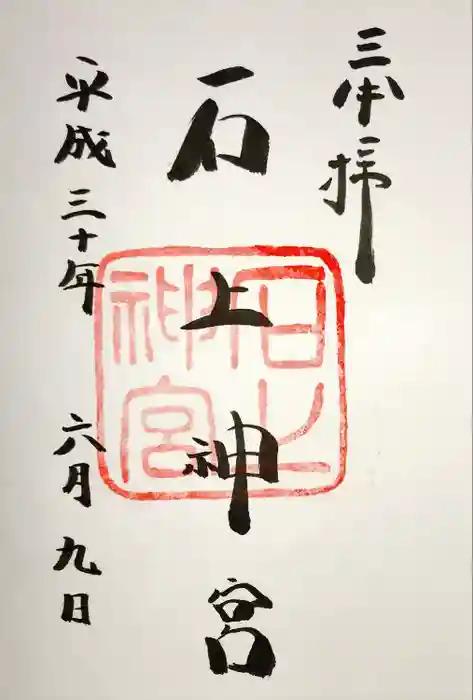 奉拝
石上神宮
石上
神宮
平成三十年 六月九日